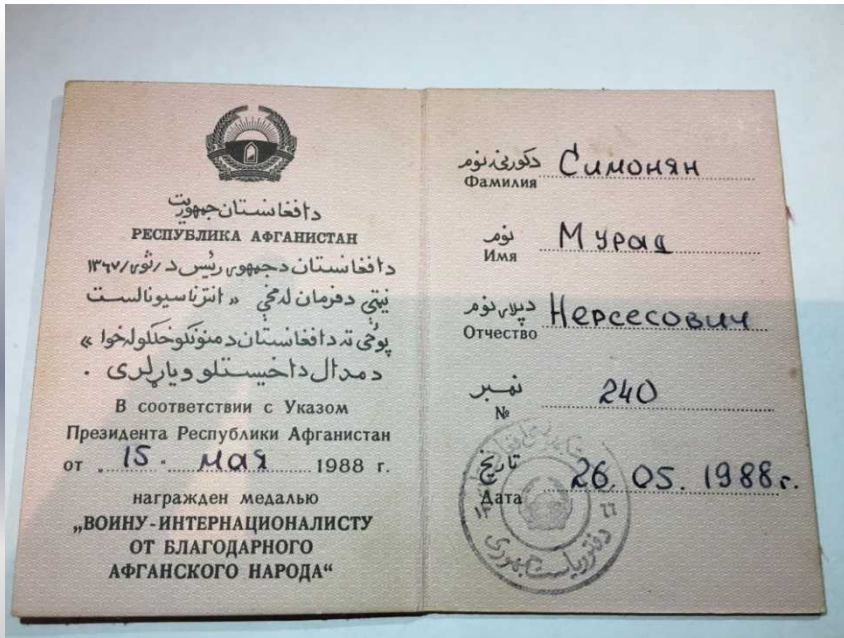 دافغانستان جمهوریت
РЕСПУБЛИКА АФГАНИСТАН
دافغانستان دجمهوری رئیس د /ثور/۱۳۶۷
نیټې دفرمان له مخې «انترناسیونالست
پوځی ته دافغانستان دمنونکوخلکولخوا»
دمدال داخیستلو ویاړلری .
В соответствии с Указом
Президента Республики Афганистан
от 15. мая 1988 г.
награжден медалью
„ВОИНУ-ИНТЕРНАЦИОНАЛИСТУ
ОТ БЛАГОДАРНОГО
АФГАНСКОГО НАРОДА“
دکورنۍ نوم
Фамилия Симонян
نوم
Имя Мурад
دپلار نوم
Отчество Нерсесович
نمبر
№ 240
تاریخ
Дата 26.05.1988г.
دفتر ریاست جمهوری